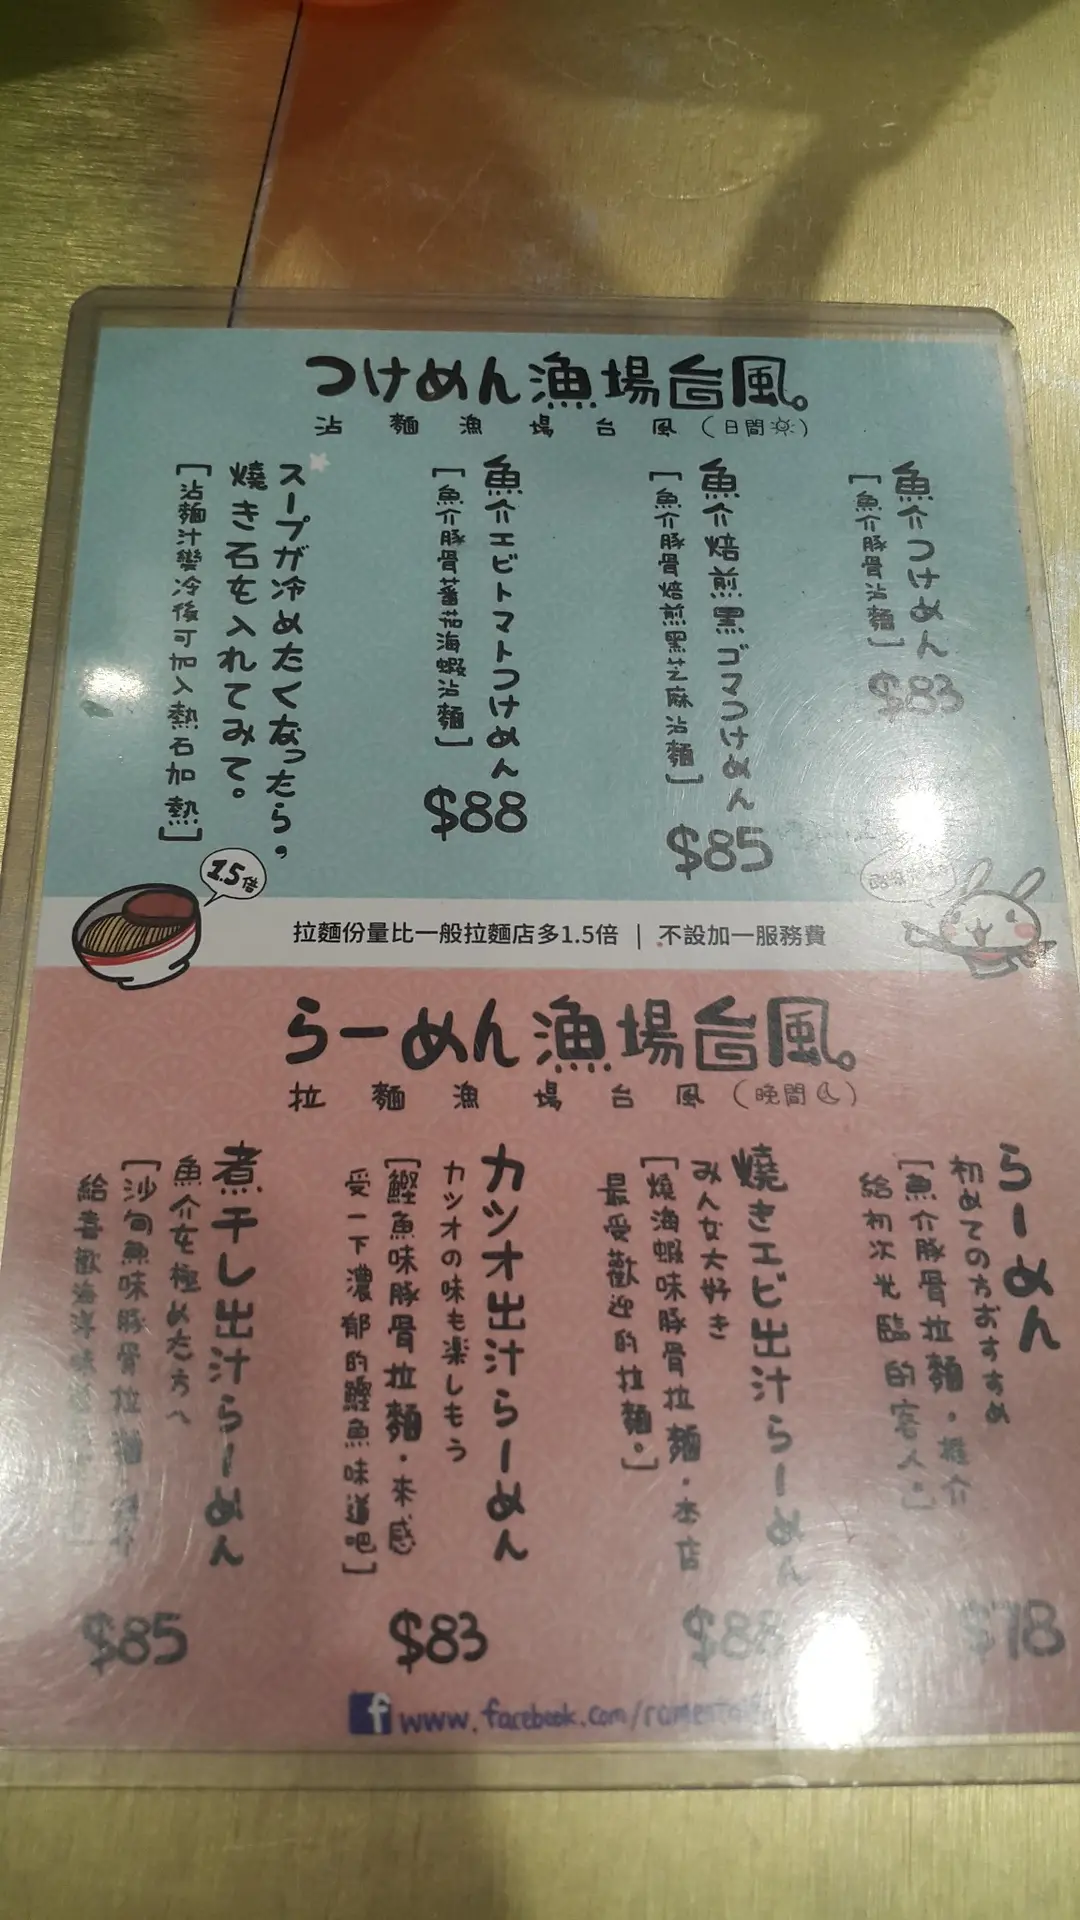 つけめん漁場台風。
沾麵漁場台風(日間)
魚介つけめん
[魚介豚骨沾麵]
$83
魚介焙煎黒ゴマつけめん
[魚介豚骨焙煎黑芝麻沾麵]
$85
魚介エビトマトつけめん
[魚介豚骨蕃茄海蝦沾麵]
$88
スープが冷めたくなったら,
燒き石を入れてみて。
[沾麵汁變冷後可加入熱石加熱]
1.5倍
拉麵份量比一般拉麵店多1.5倍 | 不設加一服務費
らーめん漁場台風。
拉麵漁場台風(晚間)
らーめん
初めての方おすすめ
[魚介豚骨拉麵・推介
給初次光臨的客人。]
$78
燒きエビ出汁らーめん
みんな大好き
[燒海蝦味豚骨拉麵・本店
最受歡迎的拉麵。]
$88
カツオ出汁らーめん
カツオの味も楽しもう
[鰹魚味豚骨拉麵・來感
受一下濃郁的鰹魚味道吧]
$83
煮干し出汁らーめん
魚介を極めた方へ
[沙甸魚味豚骨拉麵
給喜歡海洋味
$85
www.facebook.com/ramen